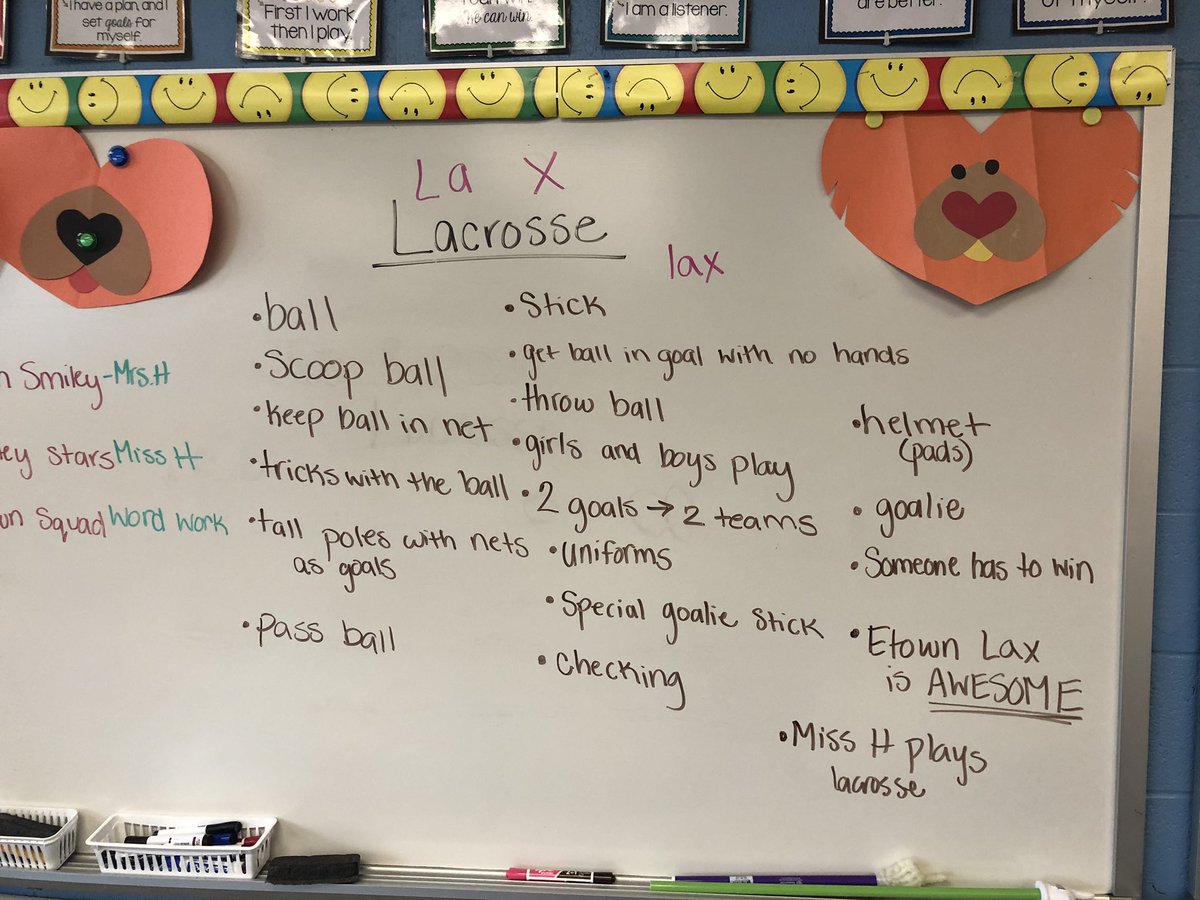 I have a plan and I
set goals for
myself.
First I work,
then I play.
he can win.
I am a listener.
are better.
La X
Lacrosse
lax
Smiley-Mrs.H
Stars Miss H
Squad Word Work
•ball
•Scoop ball
•keep ball in net
•tricks with the ball
•tall poles with nets
as goals
•pass ball
•Stick
•get ball in goal with no hands
•throw ball
•girls and boys play
•2 goals → 2 teams
•uniforms
•Special goalie stick
•checking
•helmet
(pads)
•goalie
•Someone has to win
•Etown Lax
is AWESOME
•Miss H plays
lacrosse